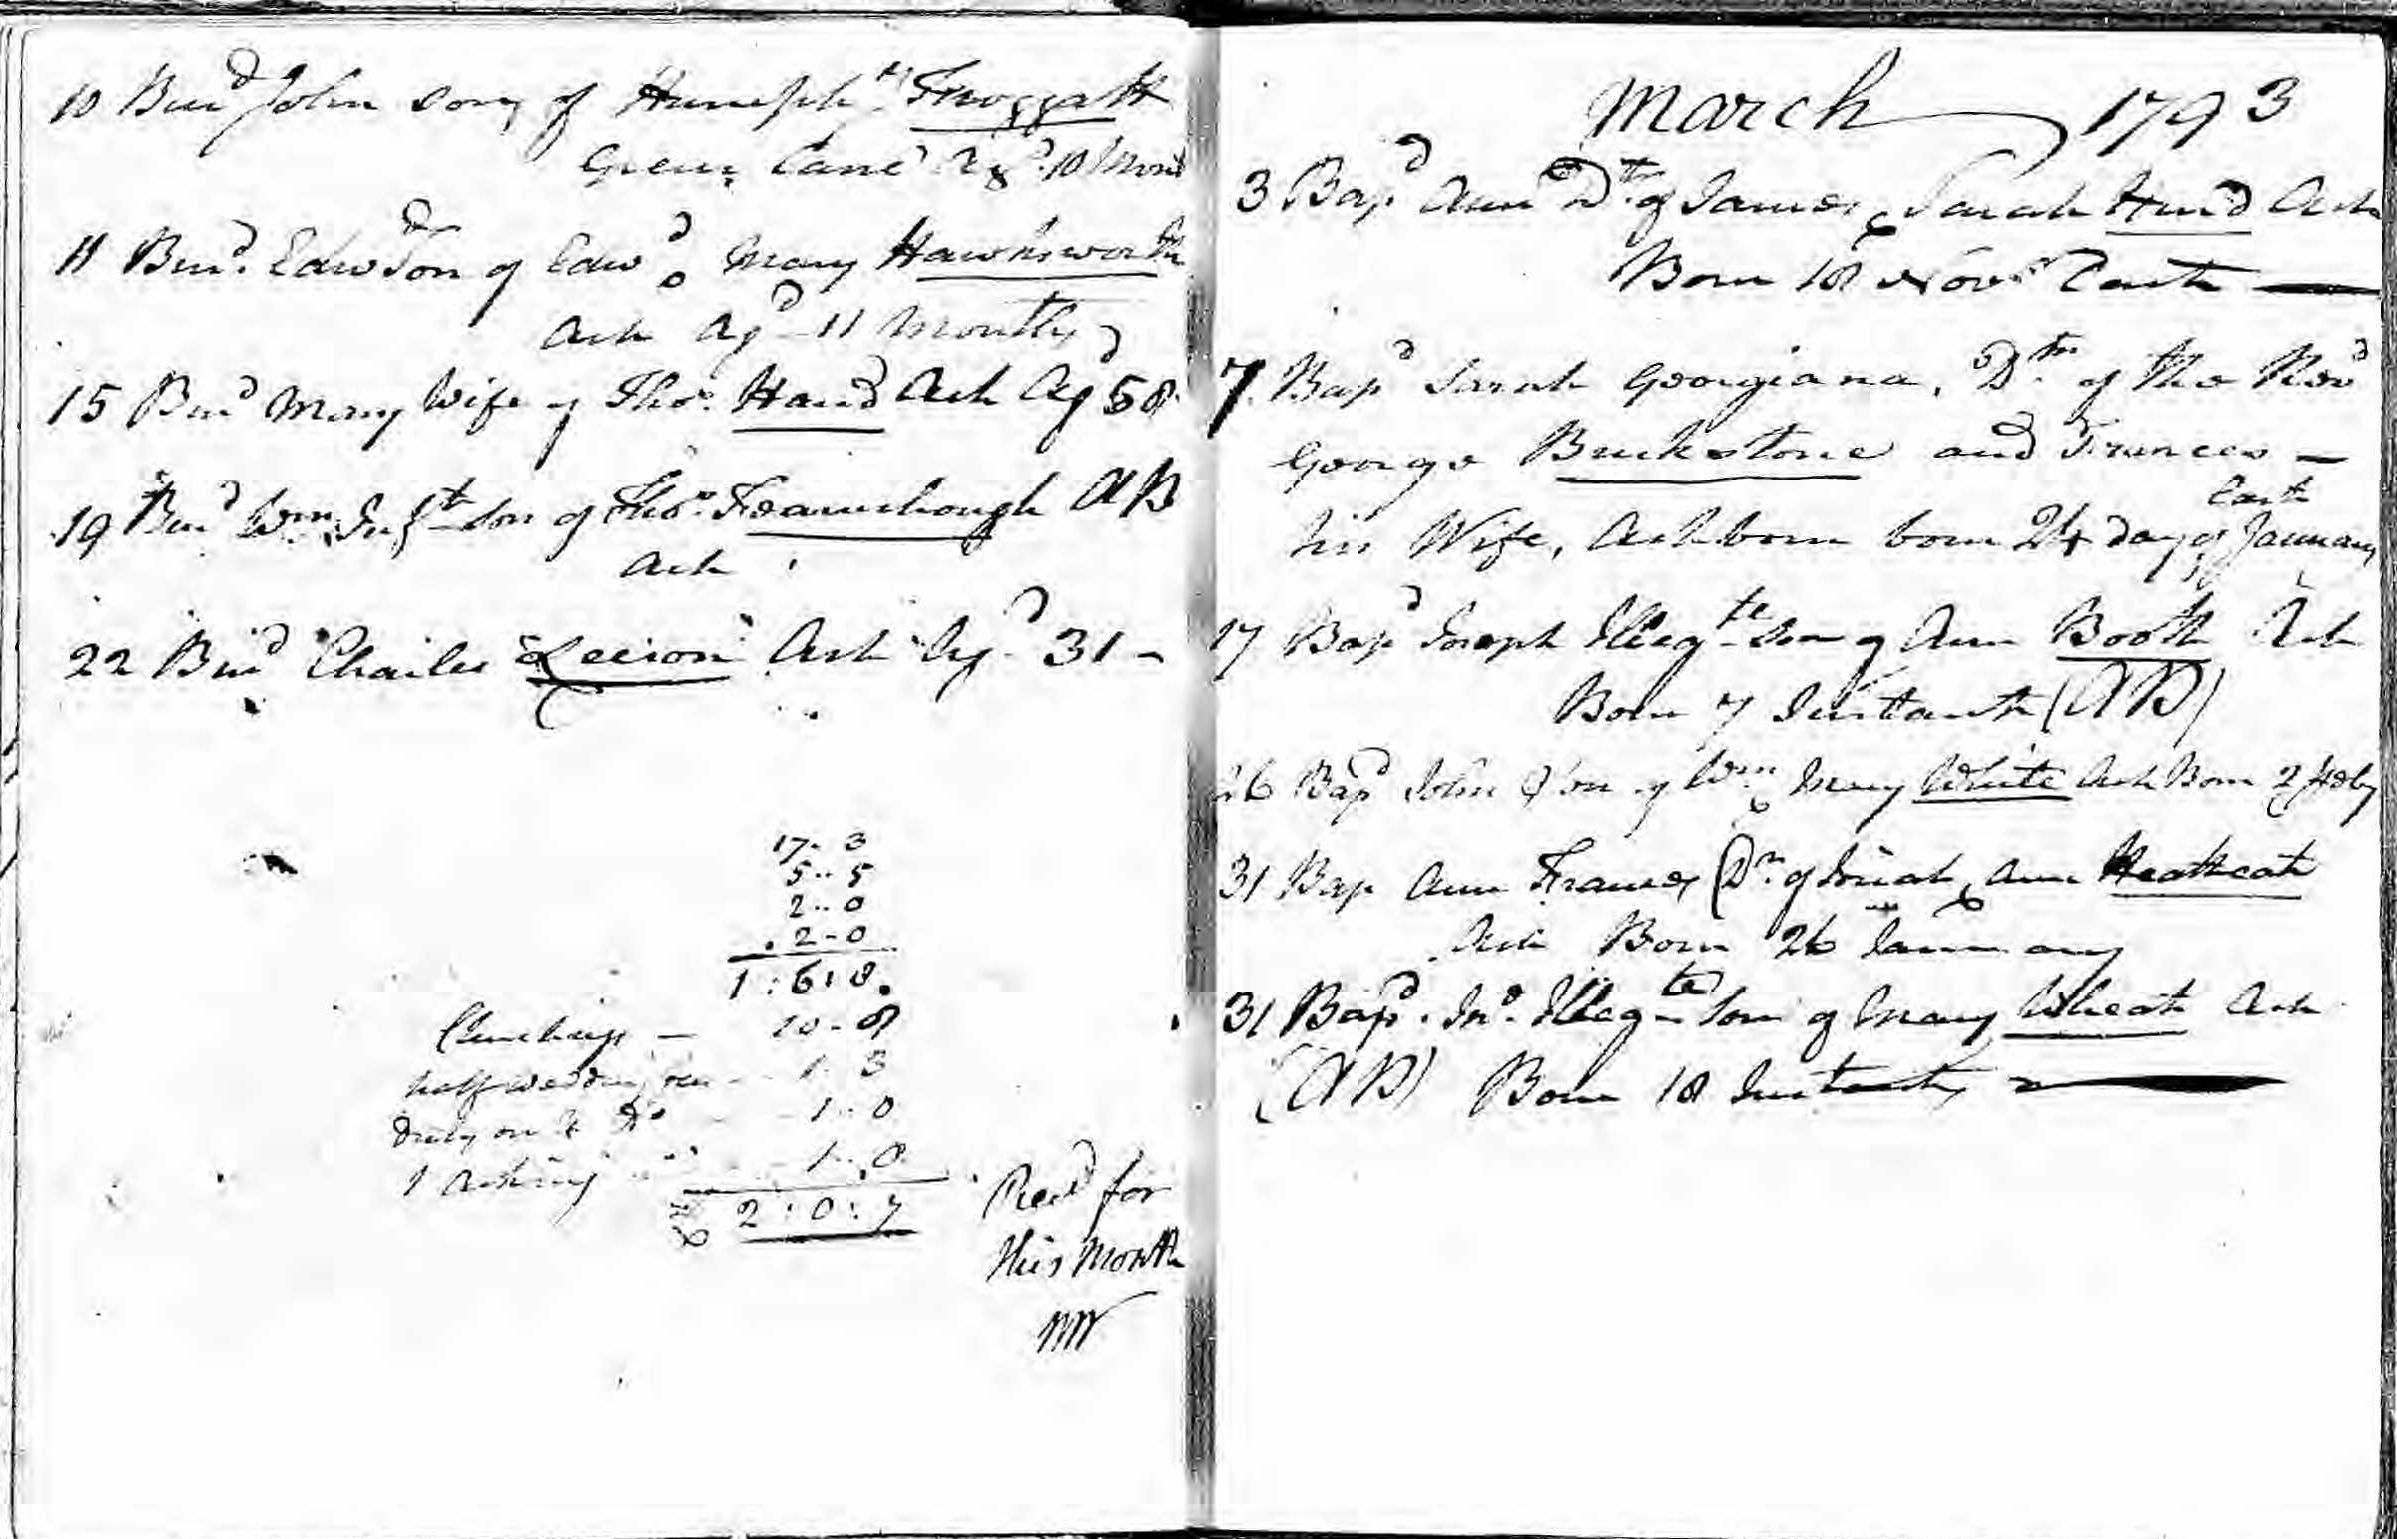 10 Burd John son of Humphry Froggatt
Green Lane Agd 10 Mons
11 Burd. Edwd Son of Edwd & Mary Hawksworth
Ash Agd 11 Months
15 Burd Mary Wife of Thos. Hand Ash Agd 58
19 Burd Wm. Inft Son of Thos. Fearnehough AB
Ash
22 Burd Charles Ash Agd 31 -
17- 3
5-- 5
2-- 0
.2-0
1:6:8.
Churchings — 10-8
half wedding 1- 3
Duty on Do - 1-0
1 Asking - 1-0
2:0:7
Recd for
this Month
MW
March 1793
3 Bapd Ann Dtr of James & Sarah Hand Ash
Born 18 Novr Last —
7. Bapd Sarah Georgiana, Dtr of the Revd
George Buckstone and Frances —
his Wife, Ashborn born 24 day of January
Last
17 Bapd Joseph Illegte Son of Ann Booth Ash
Born 7 Instant (AB)
26 Bapd John Son of Wm & Mary White Ash Born 2 Feby
31 Bap Ann Frances Dr. of Josiah & Ann Heathcote
Ash Born 26 January
31 Bapd. Jno. Illegte Son of Mary Wheat Ash
(AB) Born 18 Instant